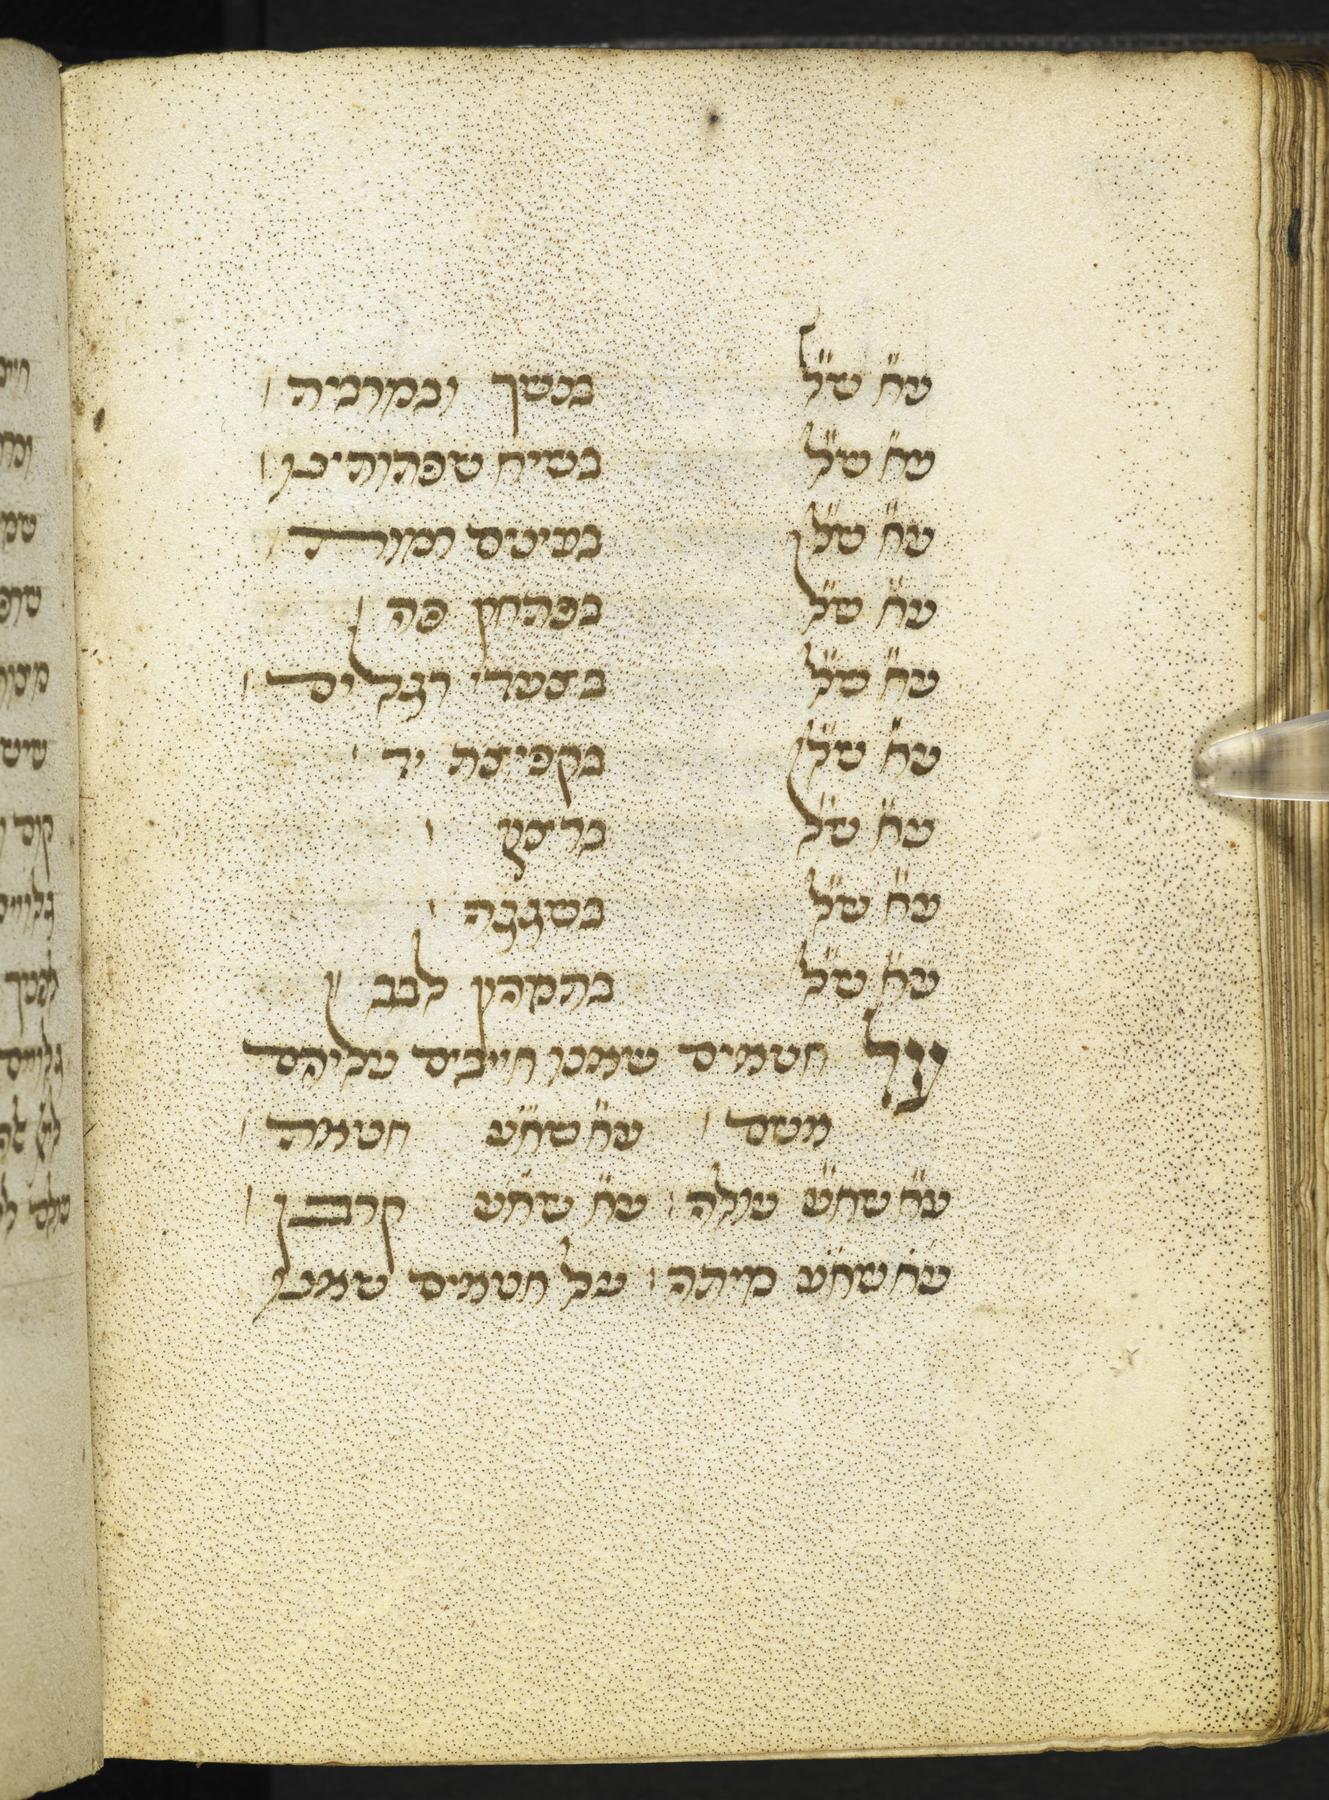 ע״ח ש״ל בנשך ובמרמיה
ע״ח ש״ל בשיח שפתותינו
ע״ח ש״ל בעינים רמות
ע״ח ש״ל בפתחון פה
ע״ח ש״ל בצעדי רגלים
ע״ח ש״ל בקפיצת יד
ע״ח ש״ל ברכוש
ע״ח ש״ל בשגגה
ע״ח ש״ל בתמהון לבב
ועל חטאים שאנו חייבים עליהם
משם ע״ח שח״ע חטאת
ע״ח שח״ע עולה ע״ח שח״ע קרבן
ע״ח שח״ע מיתה על חטאים שאנו